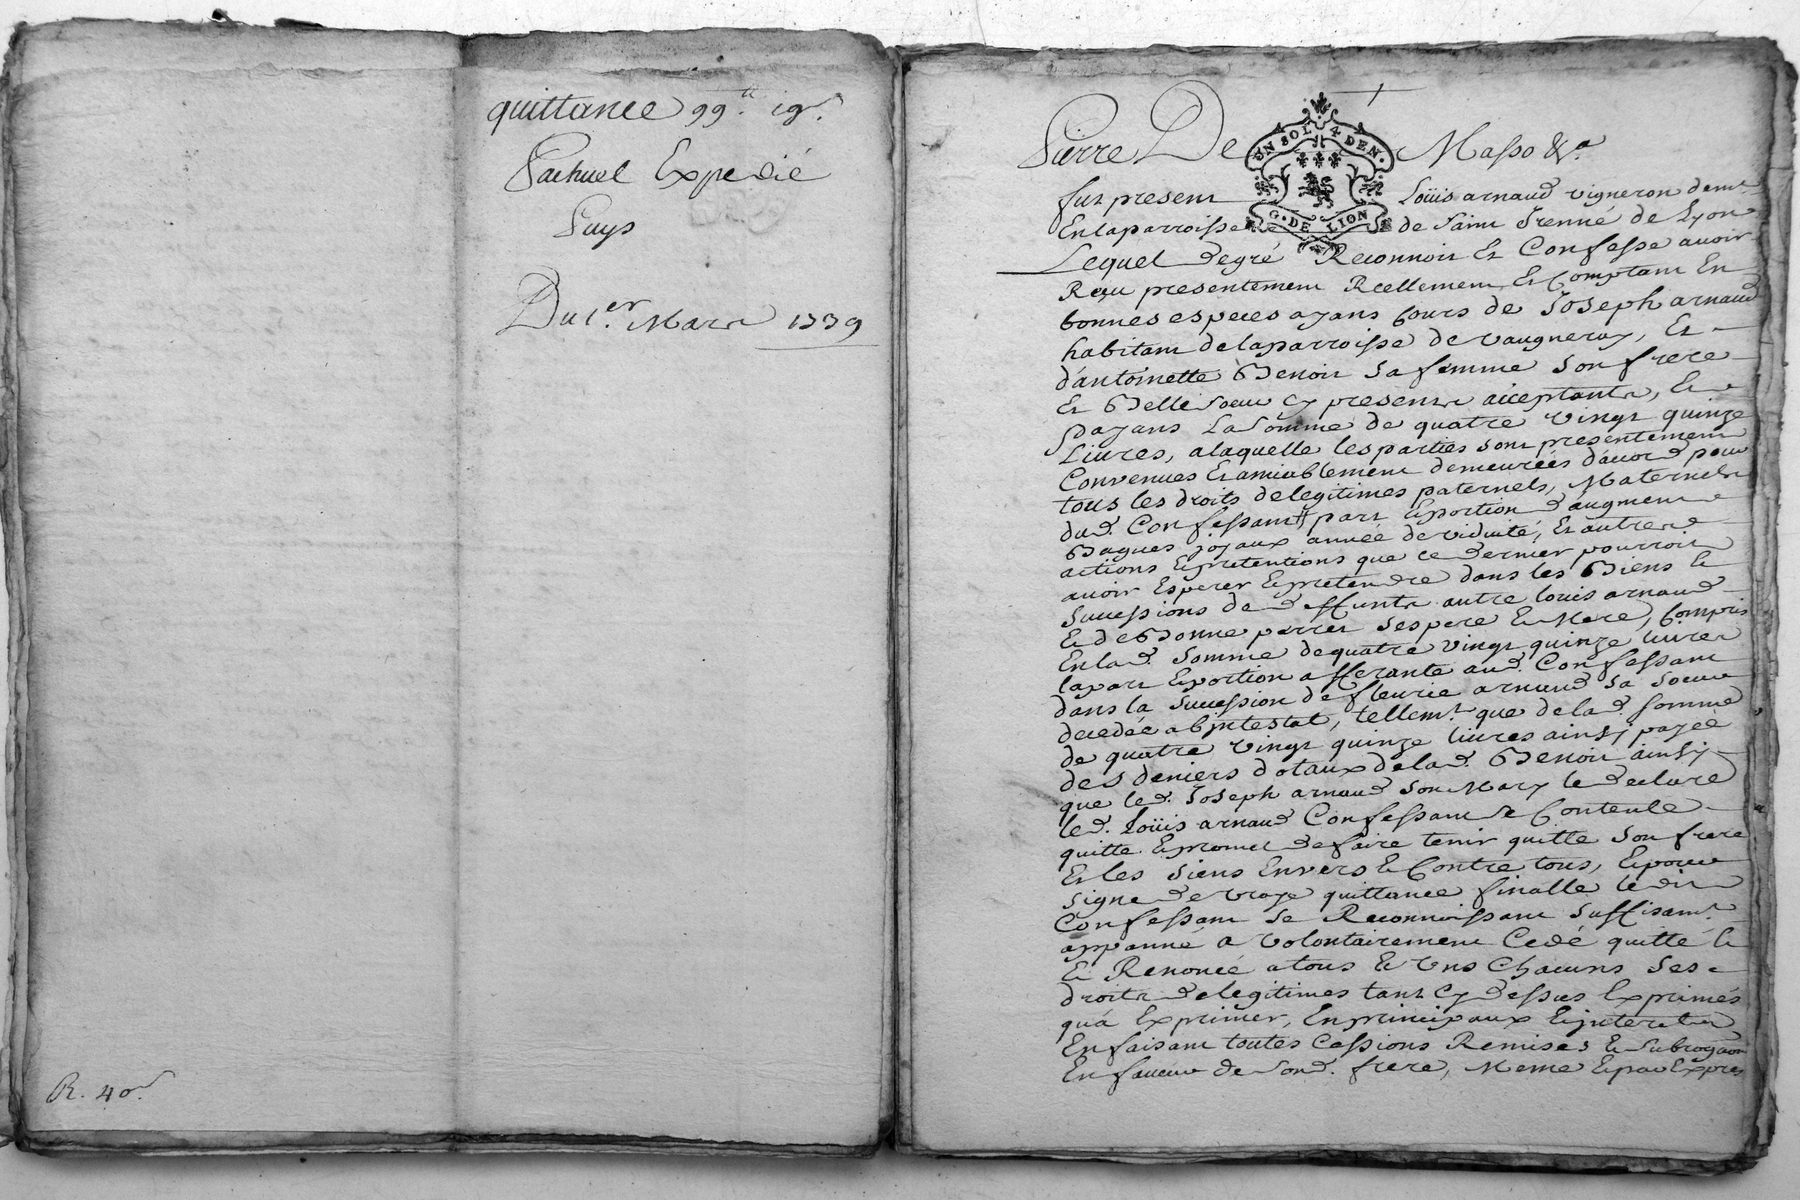 quittance 99.tt 19s.
Pachuel Expedié
Puys
Du 1.er Mars 1739
R. 40s.
Pierre De Masso &.a
UN SOL 4 DEN.
G. DE LION
fut present Loüis arnaud vigneron demt
En laparroisse de saint Irenné de Lyon
Lequel degré Reconnoit Et Confesse avoir
Reçu presentement Reellement Et Comptant En
bonnes especes ayans Cours de Joseph arnaud
habitant de laparroisse de vaugneray, Et
d'antoinette Benoit sa femme son frere
Et Belle soeur cy presents acceptants, Et
payans La somme de quatre vingt quinze
Livres, alaquelle les parties sont presentement
Convenues Et amiablement demeurées d'acord pour
tous les droits delegitimes paternels, Maternels
dud. Confessant part Et portion d'augment
Bagues joyaux année de viduité, Et autres
actions Et pretentions que ce dernier pourroit
avoir Esperer Et pretendre dans les Biens Et
Successions de deffunts autre louis arnaud
Et de Bonne perret ses pere Et Mere, Compris
En lad. somme de quatre vingt quinze livres
la part Et portion afferante aud. Confessant
dans la succession de fleurie arnaud sa soeur
decedée abjntestat, tellemt. que de lad. somme
de quatre vingt quinze livres ainsy payée
des deniers dotaux de lad. Benoit ainsy
que led. Joseph arnaud son Mary le declare
led. Loüis arnaud Confessant se Contente
quitte Et promet de faire tenir quitte son frere
Et les siens Envers Et Contre tous, Et pour
signe de vraye quittance finalle ledit
Confessant se Reconnoissant suffisamt.
appanné a volontairement Cedé quitté Et
Et Renoncé atous Et Uns Chacuns ses
droits delegitimes tant Cy dessus Exprimés
qu'a Exprimer, En principaux Et jnterets
En faisant toutes Cessions Remises Et subrogaons
En faveur de sond. frere, Meme Et par Expres